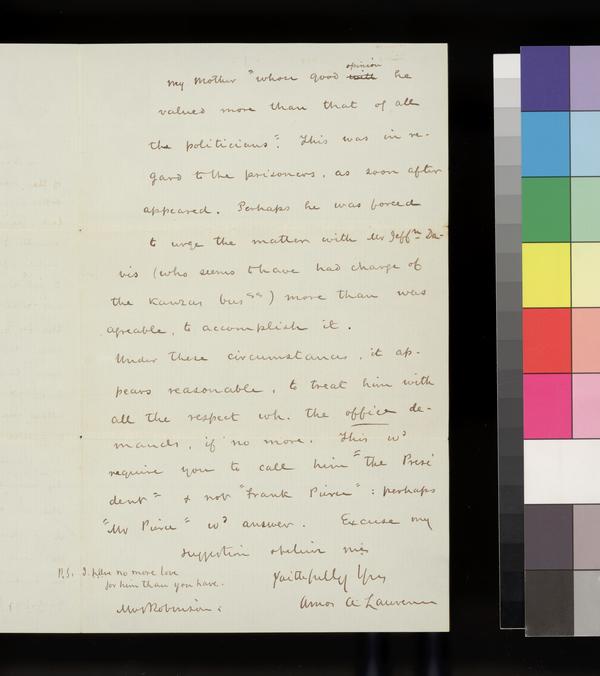 opinion
my mother "whose good with he
valued more than that of all
the politicians". This was in re-
gard to the prisoners, as soon after
appeared. Perhaps he was forced
to urge the matter with Mr Jeffn Da-
vis (who seems to have had charge of
the Kanzas buss) more than was
agreable, to accomplish it.
Under these circumstances, it ap-
pears reasonable, to treat him with
all the respect wh. the office de-
mands, if no more. This wd
require you to call him "the Presi
dent" & not "Frank Pierce": perhaps
"Mr Pierce" wd answer. Excuse my
suggestion & believe me,
Faithfully Yrs
Amos A Lawrence
P.S. I have no more love
for him than you have.
Mrs Robinson.